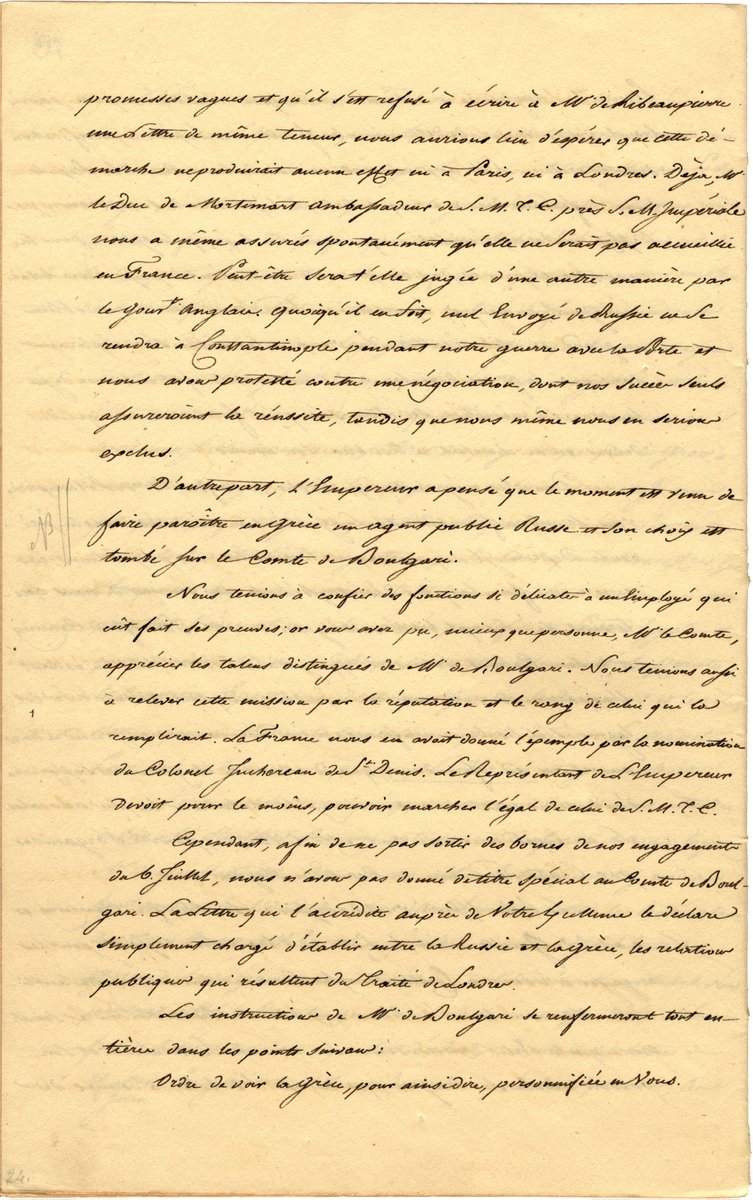 promesses vagues et qu'il s'est refusé à écrire à Mr de Ribeaupierre
une Lettre de même teneur, nous aurions lieu d'espérer que cette dé-
marche ne produirait aucun effet ni à Paris, ni à Londres. Déja, Mr
le Duc de Mortemart Ambassadeur de S. M. T. C. près S. M. Impériale
nous a même assurés spontanément qu'elle ne serait pas accueillie
en France. Peut-être sera t'elle jugée d'une autre manière par
le Gouvt Anglais. Quoiqu'il en soit, nul Envoyé de Russie ne se
rendra à Constantinople pendant notre guerre avec la Porte et
nous avons protesté contre une négociation, dont nos succès seuls
assureraient la réussite, tandis que nous même nous en serions
exclus.
D'autre part, l'Empereur a pensé que le moment est venu de
faire paroître en Grèce un agent public Russe et son choix est
tombé sur le Comte de Boulgari.
Nous tenions à confier des fonctions si délicates à un Employé qui
eût fait ses preuves; or vous avez pu, mieux que personne, Mr le Comte,
apprécier les talens distingués de Mr de Boulgari. Nous tenions aussi
à relever cette mission par la réputation et le rang de celui qui la
remplirait. La France nous en avait donné l'exemple par la nomination
du Colonel Juchereau de St Denis. Le Représentant de l'Empereur
devoit pour le moins, pouvoir marcher l'égal de celui de S. M. T. C.
Cependant, afin de ne pas sortir des bornes de nos engagements
du 6 Juillet, nous n'avons pas donné de titre spécial au Comte de Boul-
gari. La Lettre qui l'accrédite auprès de Votre Excellence le déclare
simplement chargé d'établir entre la Russie et la Grèce, les relations
publiques qui résultent du Traité de Londres.
Les instructions de Mr de Boulgari se renfermeront tout en-
tières dans les points suivans:
Ordre de voir la Grèce, pour ainsi dire, personnifiée en Vous.
24.